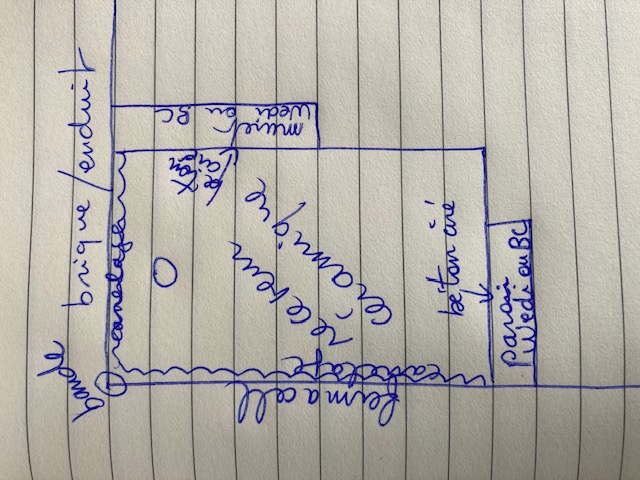 brique / enduit
bande
carrelage
muret
Wedi ou
BC
receveur
céramique
béton ciré
Paroi
Wedi ou BC
carrelage
fermacell